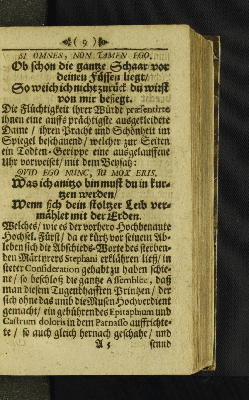 ( 9 )
SI OMNES, NON TAMEN EGO.
Ob schon die gantze Schaar vor
deinen Füssen liegt/
So weich ich nicht zurück du wirst
von mir besiegt.
Die Flüchtigkeit ihrer Würde præsentirte
ihnen eine auffs prächtigste ausgekleidete
Dame / ihren Pracht und Schönheit im
Spiegel beschauend/ welcher zur Seiten
ein Todten-Gerippe eine ausgelauffene
Uhr vorweiset/ mit dem Beysatz:
QVID EGO NUNC, TU MOX ERIS.
Was ich anitzo bin must du in kur-
tzen werden/
Wenn sich dein stoltzer Leib ver-
mählet mit der Erden.
Welches/ wie es der vorhero-Hochbenante
Hochsel. Fürst/ da er kurtz vor seinem Ab-
leben sich die Abschieds-Worte des sterben-
den Märtyrers Stephani erklähren ließ/ in
steter Consideration gehabt zu haben schie-
ne/ so beschloß die gantze Assemblée, daß
man diesem Tugendhafften Printzen / der
sich ohne das umb die Musen Hochverdient
gemacht/ ein gebührendes Epitaphium und
Castrum doloris in dem Parnasso auffrichte-
te / so auch gleich hernach geschahe/ und
A 5